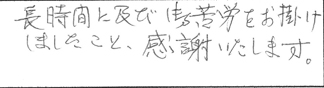 長時間に及び御苦労をお掛け
しましたこと、感謝いたします。